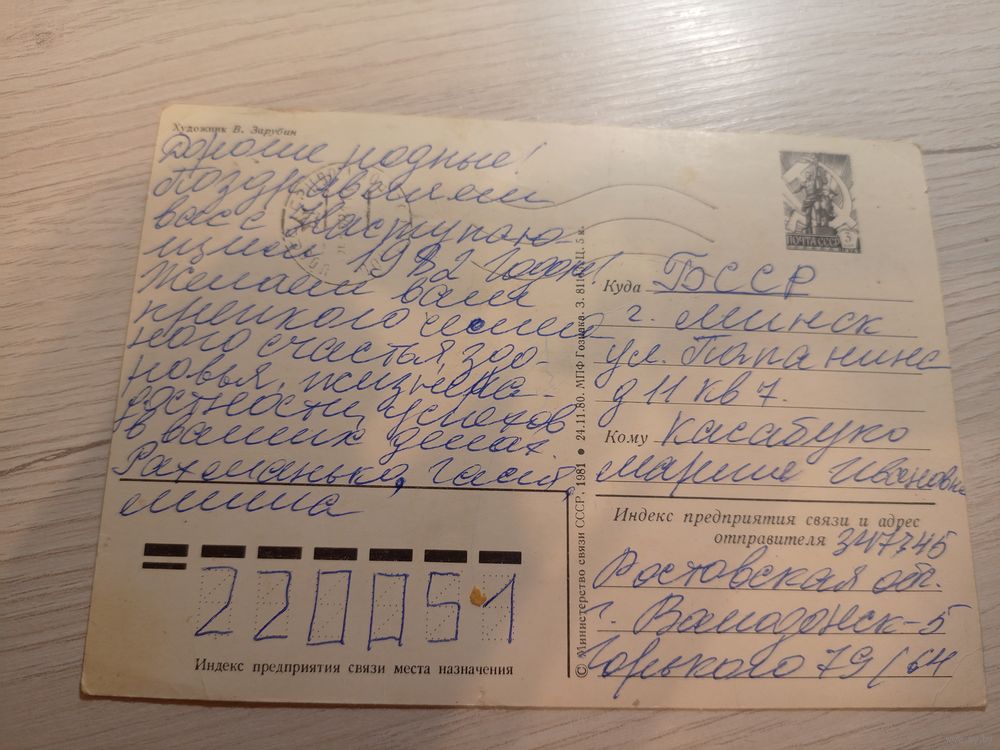 Художник В. Зарубин
Дорогие родные!
Поздравляем
вас с наступаю-
щим 1982 годом!
Желаем вам
крепкого
ного счастья, здо-
ровья, жизнера-
достности, успехов
в ваших делах.
мина
ПОЧТА СССР 5
Куда БССР
г. Минск
ул. Папанина
д 11 кв 7.
Кому Касабуко
Марии Ивановне
Индекс предприятия связи и адрес
отправителя 347345
Ростовская обл.
г. Волгодонск-5
Горького 79/64
220051
Индекс предприятия связи места назначения
© Министерство связи СССР, 1981 • 24.11.80. МПФ Гознака. З. Ц. 5 к.